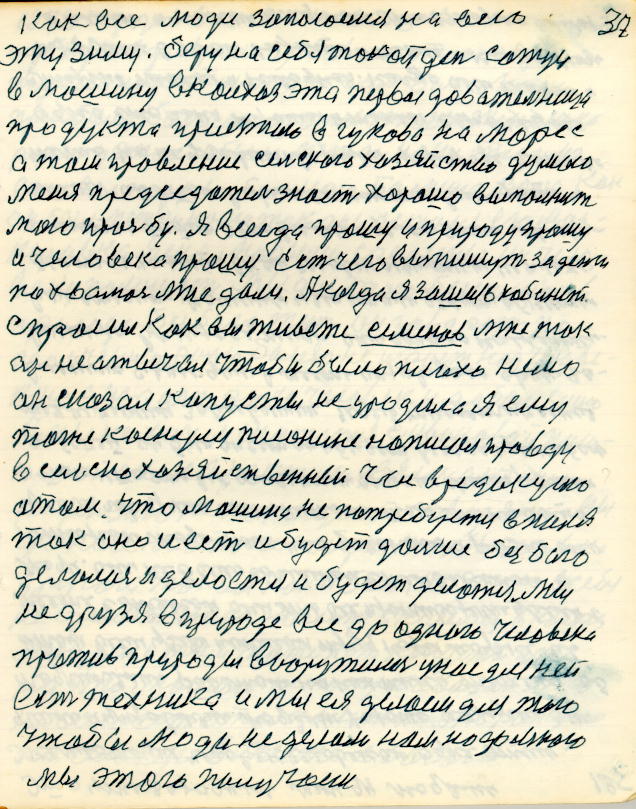 37
Как все люди запасаемся на всю
эту зиму. беру на себя такой ден сажуи
в машину вколхоз эта перва доватолница
продукта приехали в гуково на Морес
а там провление селского хозяйство думою
меня председател знает хорошо выполнит
маю прозбу. Я всегда прошу и природу прошу
и человека прошу Ест чего выпишут за денги
похвамог Мне дали. А когда я зашил в кабинет
спросил Как вы живете семенов мне так
он не атвичал Чтобы было плохо немо
он сказал Капусты не уродила я ему
тоже коснулся писонине написал правду
в селскохозяйственный
атом. Что машина не потребуети в поля
так оно и ест и будет далше без бого
делалося и делости и будет делатся. Мы
не друзя в природе все до одного человека
против природы вооружилис унас для ней
Ест техника и мы ея делаем для того
Чтобы люди не делали нам
мы этого получаем